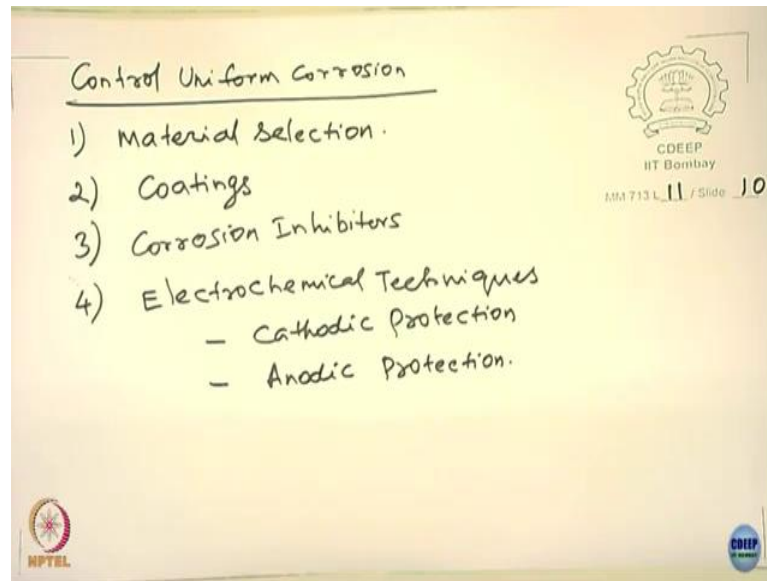 Control Uniform Corrosion
1) Material Selection.
2) Coatings
3) Corrosion Inhibiters
4) Electrochemical Techniques
- Cathodic Protection
- Anodic Protection.
CDEEP
IIT Bombay
MM 713 L 11 / Slide 10
NPTEL
CDEEP